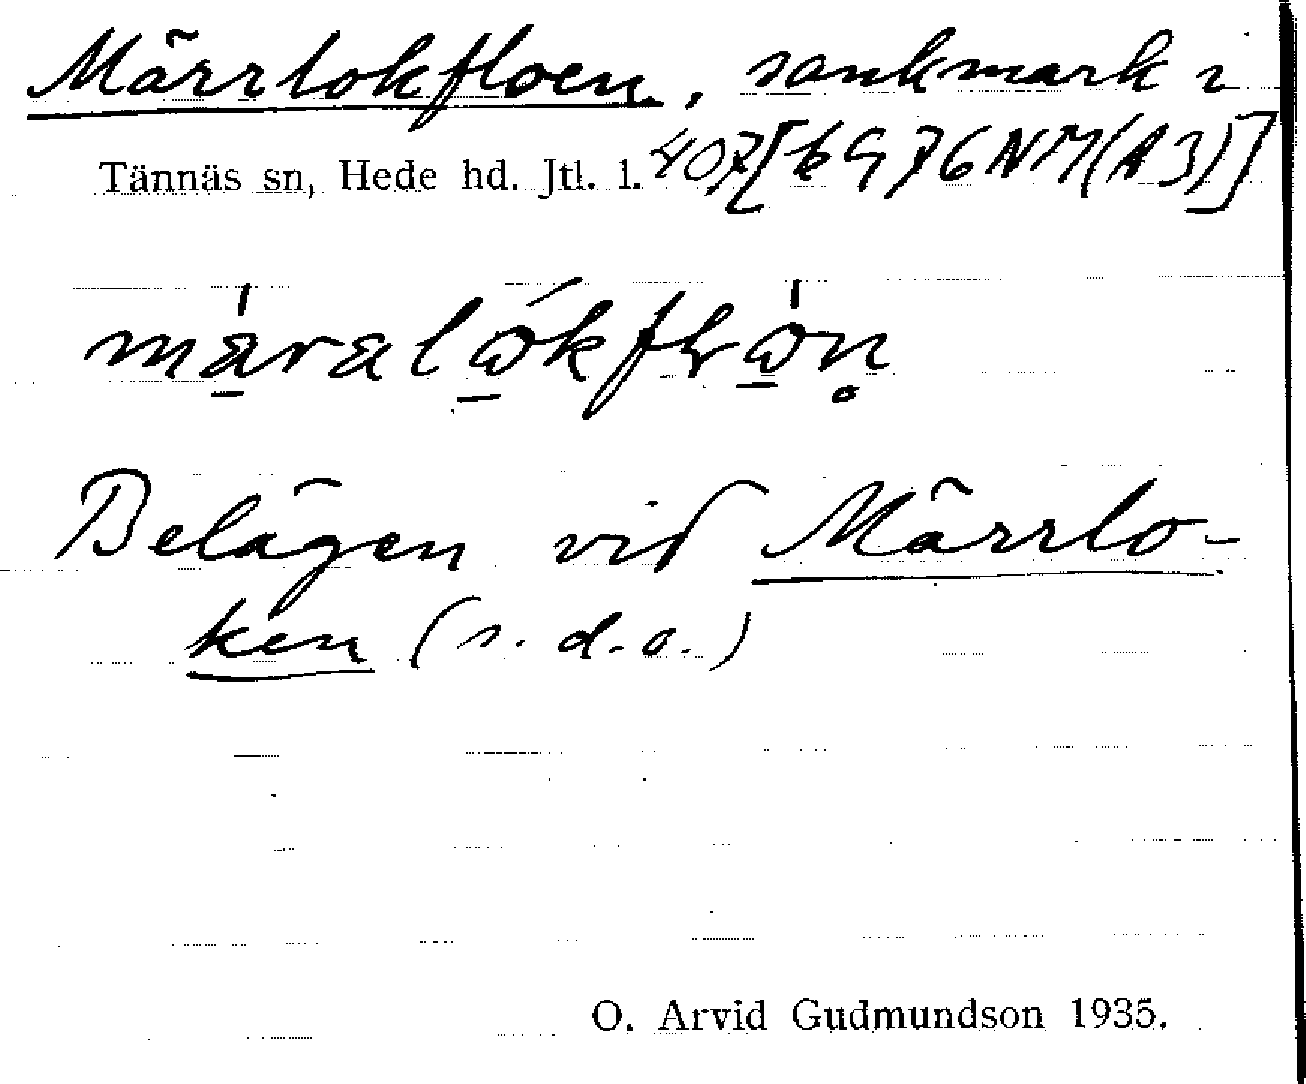 Märrlokfloen, sankmark i
Tännäs sn, Hede hd. Jtl. l. 407[k976NM(A3)]
Belägen vid Märrlo-
ken (s. d. o.)
O. Arvid Gudmundson 1935.